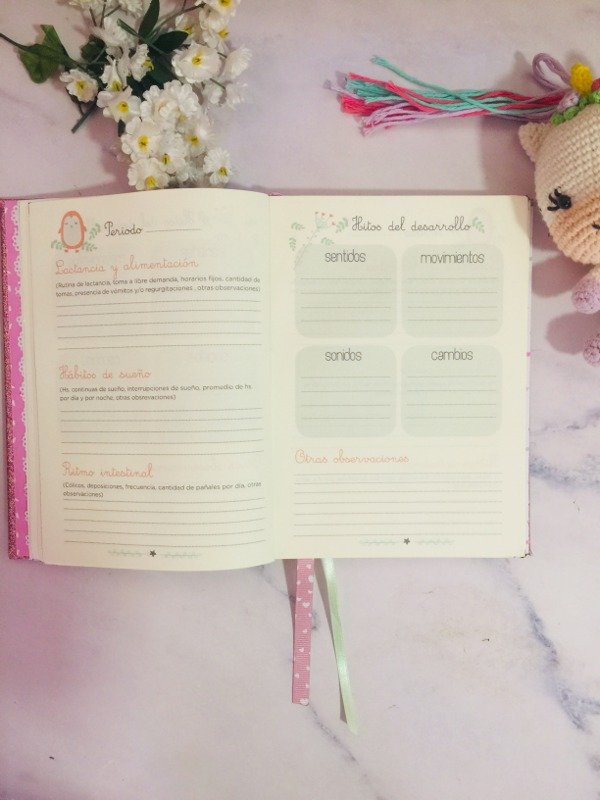 Periodo
Lactancia y alimentación
(Rutina de lactancia, toma a libre demanda, horarios fijos, cantidad de
tomas, presencia de vómitos y/o regurgitaciones , otras observaciones)
Hábitos de sueño
(Hs. continuas de sueño, interrupciones de sueño, promedio de hs.
por día y por noche, otras obsrevaciones)
Ritmo intestinal
(Cólicos, deposiciones, frecuencia, cantidad de pañales por día, otras
observaciones)
Hitos del desarrollo
sentidos
movimientos
sonidos
cambios
Otras observaciones